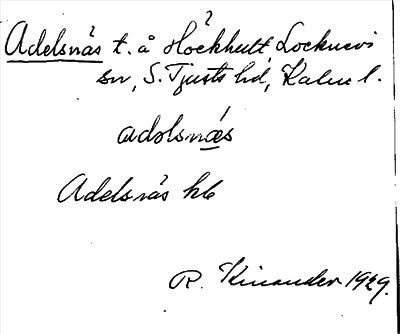 Adelsnäs t. å Höckhult Locknevi
sn, S. Tjusts hd, Kalm l.
adəlsnæ̀s
Adelsnäs hb
R. Kinander 1929.